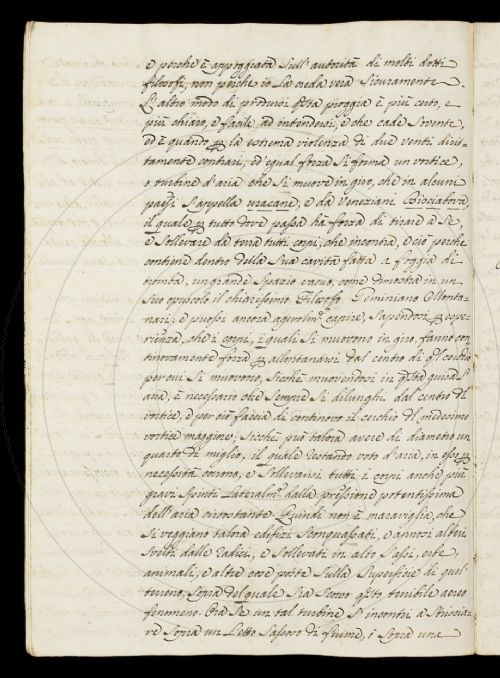 e perche è appoggiata sull' autorità di molti dotti
filosofi, non perche io la creda vera sicuramente.
L'altro modo di prodursi q̃sta pioggia è più certo, e
più chiaro, e facile ad intendersi, e che cade sovente,
ed è quando p la estrema violenza di due venti dirit-
tamente contrari, ed egual forza si forma un vortice,
o turbine d'aria che si muove in giro, che in alcuni
paesi s'appella uracane, e da Veneziani
il quale p tutto dove passa ha forza di tirare a se,
e sollevare da terra tutti corpi, che incontra, e ciò perche
contiene dentro della sua cavità fatta a foggia di
tromba, un grande spazio vacuo, come dimostra in un
suo opuscolo il chiarissimo Filosofo Geminiano Monta-
nari; e puossi ancora agevolmᵗᵉ capire, sapendosi p espe-
rienza, che i corpi, i quali si muovono in giro, fanno con
tinovamente forza p allontanarsi dal centro di ql cerchio
per cui si muovono, sicchè muovendosi in q̃sta guisa l'
aria, è necessario che sempre si dilunghi dal centro dl
vortice, e per ciò faccia di continovo il cerchio dl medesimo
vortice maggiore; sicchè può talora avere di diametro un
quarto di miglio, il quale restando voto d'aria, in esso p
necessità corrono, e sollevansi tutti i corpi anche più
gravi spinti lateralmᵗᵉ dalla pressione potentissima
dell'aria circostante. Quindi non è maraviglia, che
si veggiano talora edifizi sconquassati, e annosi alberi
svelti dalle radici, e sollevati in alto sassi, erbe,
animali, e altre cose poste sulla superficie di quel
terreno, sopra del quale sia scorso q̃sto terribile aereo
fenomeno. Ora se un tal turbine s'incontri a strisciar-
re sopra un letto sassoso di fiume, o sopra una